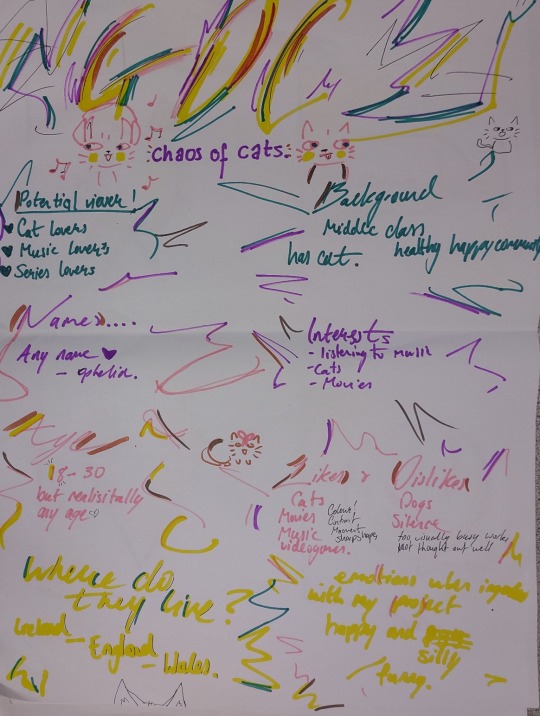 chaos of cats.
Potential viewer!
Cat lovers
Music lovers
Series lovers
Background
Middle class
has cat.
healthy happy community
Names....
Any name
- ophelia.
Interests
- listening to music
- Cats
- Movies
Age
18 - 30
but realisitally
any age
Likes & Dislikes
Cats
Movies
Music
videogames.
Colour!
Contrast
Movement
sharp shapes
Dogs
Silence
too visually busy works
not thought out well
Where do
they live?
Ireland
- England
- Wales.
emotions when
with my project
happy and
silly
funny.